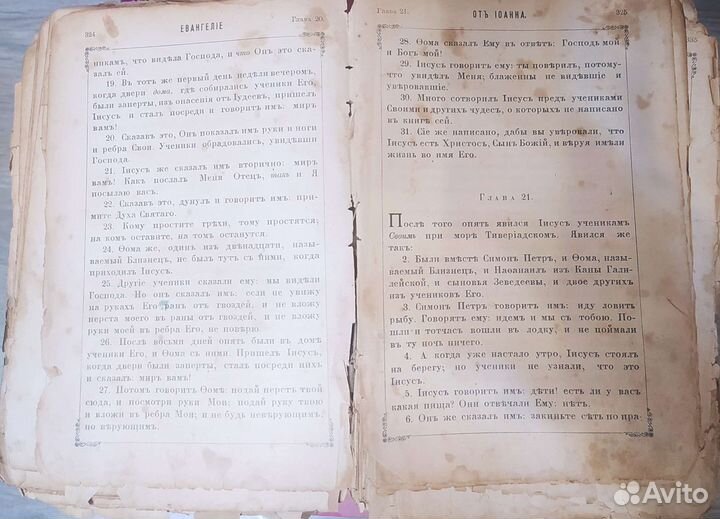 324 ЕВАНГЕЛІЕ Глава 20.
никамъ, что видѣла Господа, и что Онъ это ска-
залъ ей.
19. Въ тотъ же первый день недѣли вечеромъ,
когда двери дома, гдѣ собирались ученики Его,
были заперты, изъ опасенія отъ Іудеевъ, пришелъ
Іисусъ и сталъ посреди и говоритъ имъ: миръ
вамъ!
20. Сказавъ это, Онъ показалъ имъ руки и ноги
и ребра Свои. Ученики обрадовались, увидѣвши
Господа.
21. Іисусъ же сказалъ имъ вторично: миръ
вамъ! Какъ послалъ Меня Отецъ, такъ и Я
посылаю васъ.
22. Сказавъ это, дунулъ и говоритъ имъ: при-
мите Духа Святаго.
23. Кому простите грѣхи, тому простятся;
на комъ оставите, на томъ останутся.
24. Ѳома же, одинъ изъ двѣнадцати, назы-
ваемый Близнецъ, не былъ тутъ съ ними, когда
приходилъ Іисусъ.
25. Другіе ученики сказали ему: мы видѣли
Господа. Но онъ сказалъ имъ: если не увижу
на рукахъ Его ранъ отъ гвоздей, и не вложу
перста моего въ раны отъ гвоздей, и не вложу
руки моей въ ребра Его, не повѣрю.
26. Послѣ восьми дней опять были въ домѣ
ученики Его, и Ѳома съ ними. Пришелъ Іисусъ,
когда двери были заперты, сталъ посреди нихъ
и сказалъ: миръ вамъ!
27. Потомъ говоритъ Ѳомѣ: подай перстъ твой
сюда, и посмотри руки Мои; подай руку твою
и вложи въ ребра Мои; и не будь невѣрующимъ,
но вѣрующимъ.
Глава 21. ОТЪ ІОАННА. 325
28. Ѳома сказалъ Ему въ отвѣтъ: Господь мой
и Богъ мой!
29. Іисусъ говоритъ ему: ты повѣрилъ, потому-
что увидѣлъ Меня; блаженны не видѣвшіе и
увѣровавшіе.
30. Много сотворилъ Іисусъ предъ учениками
Своими и другихъ чудесъ, о которыхъ не написано
въ книгѣ сей.
31. Сіе же написано, дабы вы увѣровали, что
Іисусъ есть Христосъ, Сынъ Божій, и вѣруя имѣли
жизнь во имя Его.
Глава 21.
Послѣ того опять явился Іисусъ ученикамъ
Своимъ при морѣ Тиверіадскомъ. Явился же
такъ:
2. Были вмѣстѣ Симонъ Петръ, и Ѳома, назы-
ваемый Близнецъ, и Наѳанаилъ изъ Каны Гали-
лейской, и сыновья Зеведеевы, и двое другихъ
изъ учениковъ Его.
3. Симонъ Петръ говоритъ имъ: иду ловить
рыбу. Говорятъ ему: идемъ и мы съ тобою. По-
шли и тотчасъ вошли въ лодку, и не поймали
въ ту ночь ничего.
4. А когда уже настало утро, Іисусъ стоялъ
на берегу; но ученики не узнали, что это
Іисусъ.
5. Іисусъ говоритъ имъ: дѣти! есть ли у васъ
какая пища? Они отвѣчали Ему: нѣтъ.
6. Онъ же сказалъ имъ: закиньте сѣть по пра-
Avito